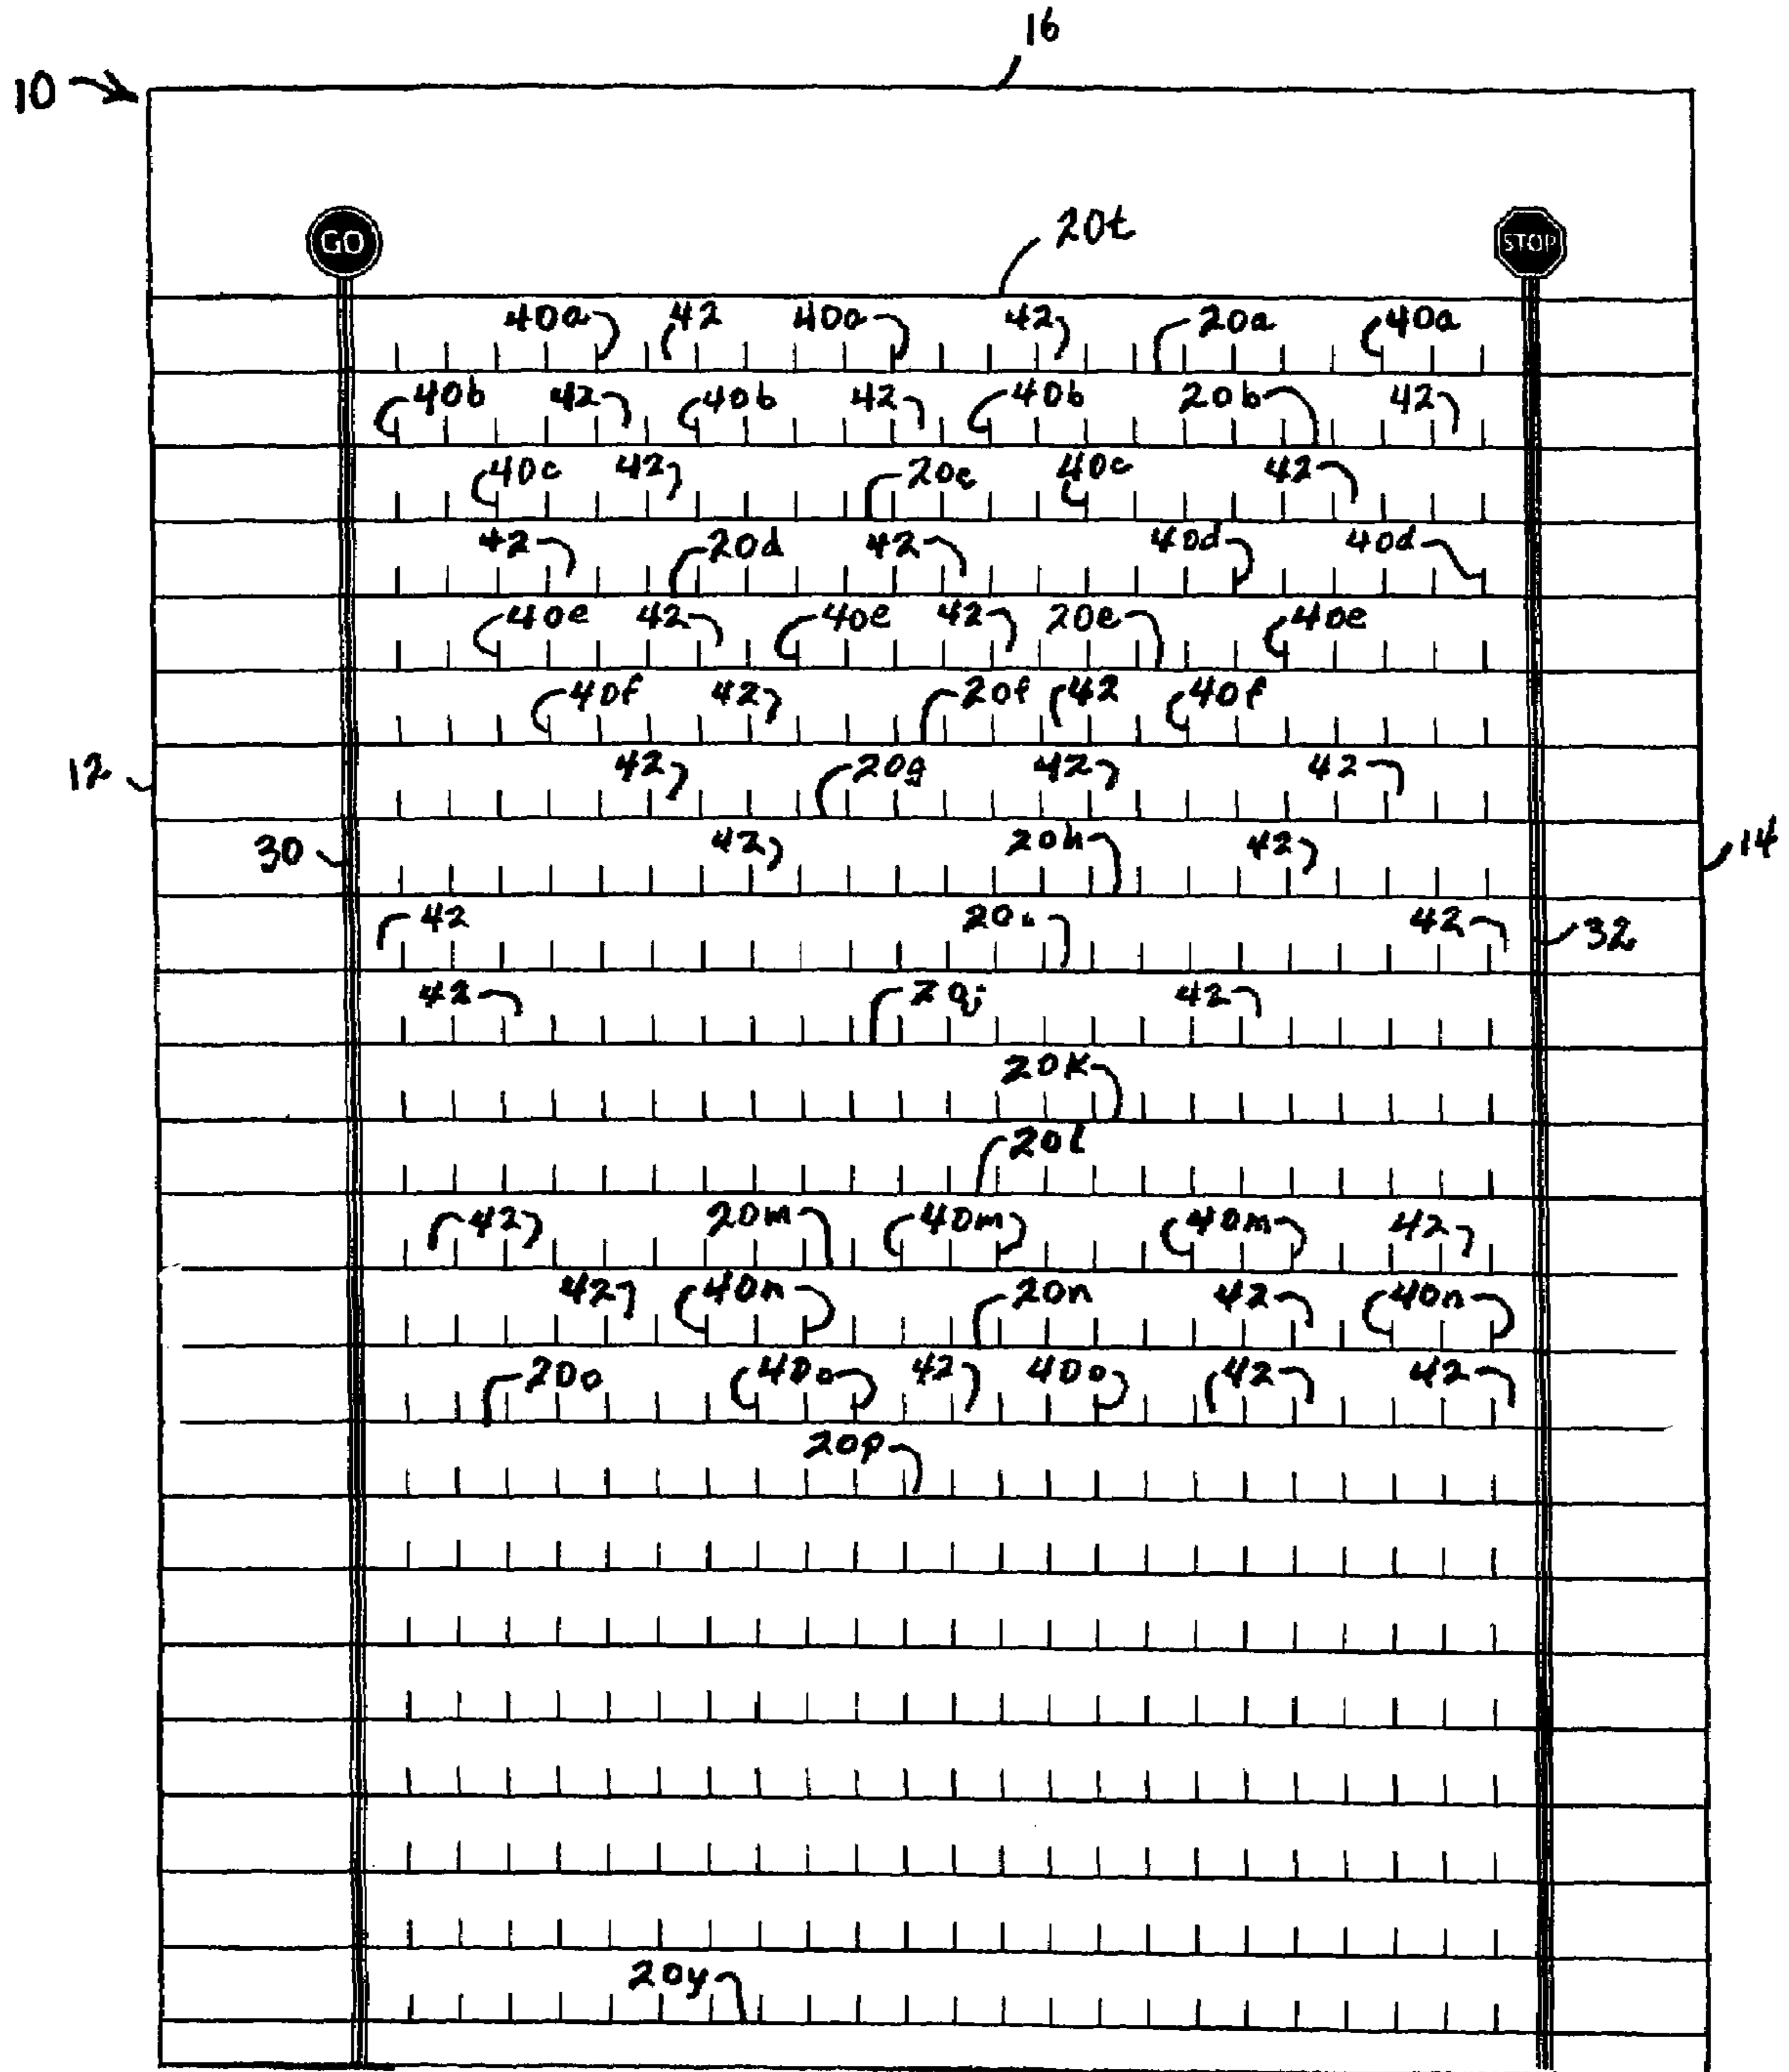 16
10
GO 20t STOP
40a 42 40a 42 20a 40a
40b 42 40b 42 40b 20b 42
40c 42 20c 40c 42
42 20d 42 40d 40d
40e 42 40e 42 20e 40e
40f 42 20f 42 40f
12 42 20g 42 42
30 42 20h 42 14
42 20i 42 32
42 20j 42
20k
20l
42 20m 40m 40m 42
42 40n 20n 42 40n
20o 40o 42 40o 42 42
20p
20y